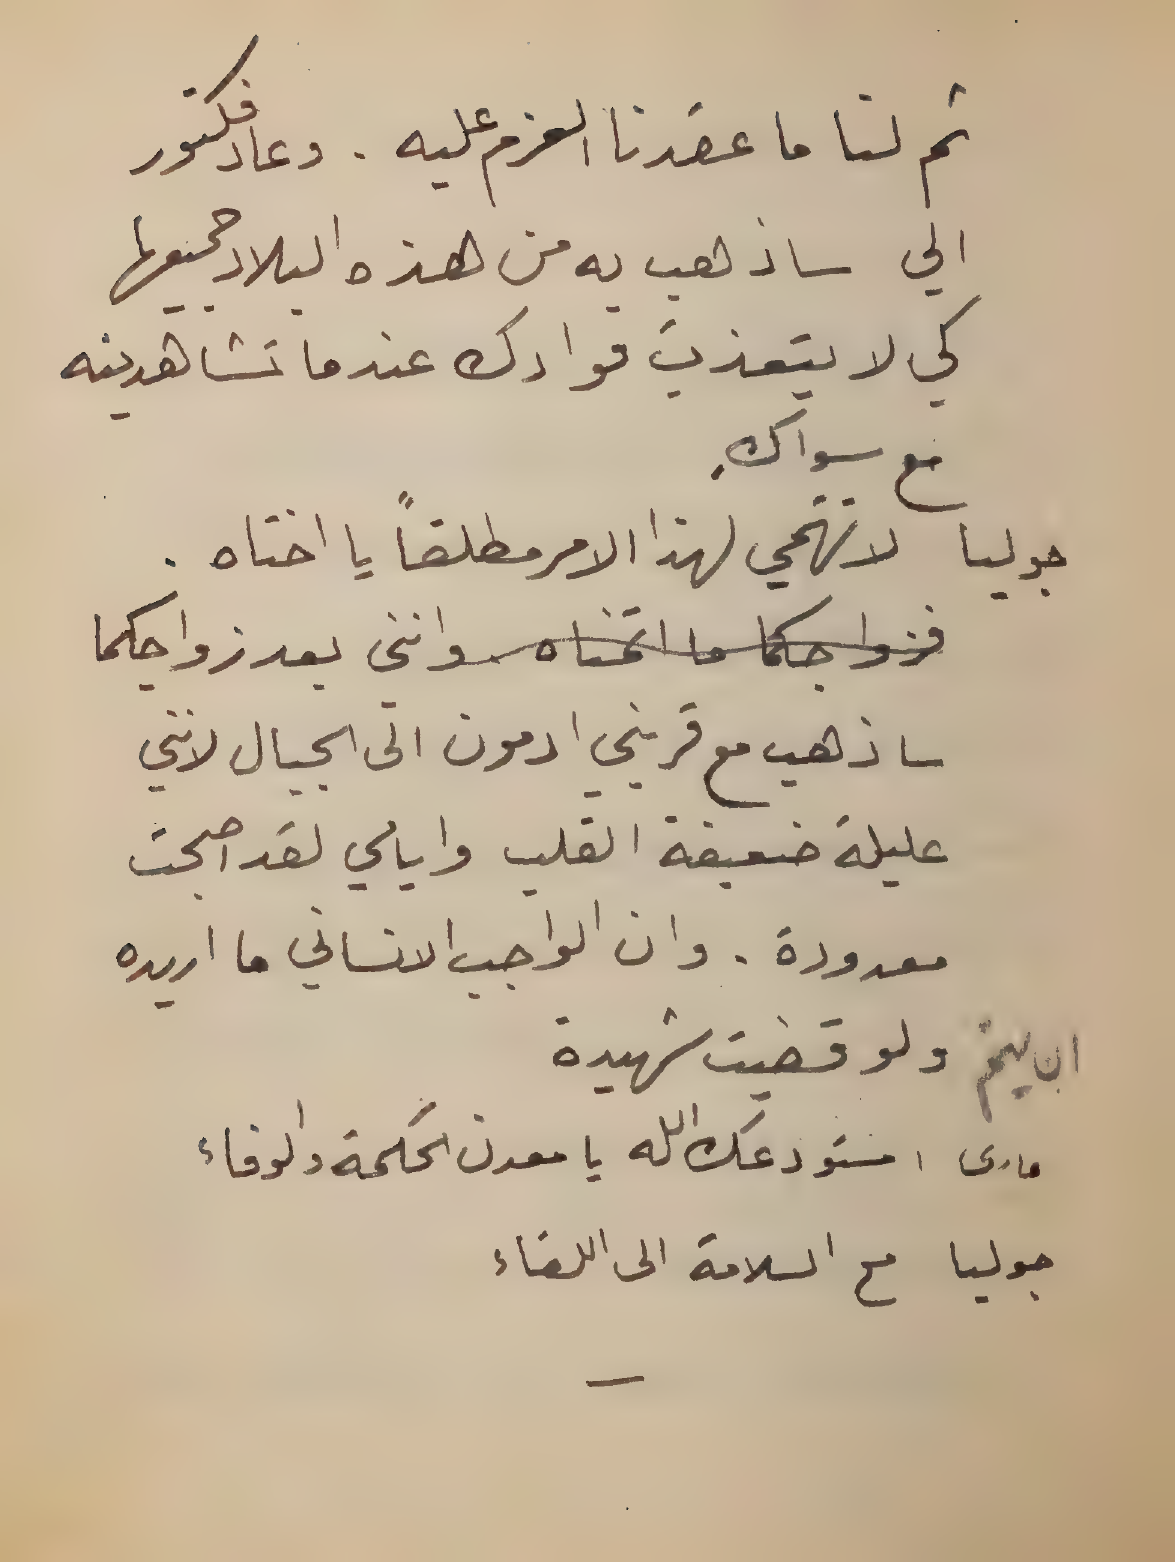 ثم لنا ما عقدنا العزم عليه . وعاد فكتور
الي سأذهب به من هذه البلاد جميعها
كي لا يتعذب فوادك عندما تشاهدينه
مع سواك .
جوليا لا تهتمي لهذا الامر مطلقاً يا اختاه .
فزواجكما ما اتمناه . وانني بعد زواجكما
ساذهب مع قريني ادمون الى الجبال لانني
عليلة ضعيفة القلب وايامي لقد اصبحت
معدودة . وان الواجب الانساني ما اريده
ان يتم ولو قضيت شهيدة
مارى استودعك الله يا معدن الحكمة والوفاء
جوليا مع السلامة الى اللقاء